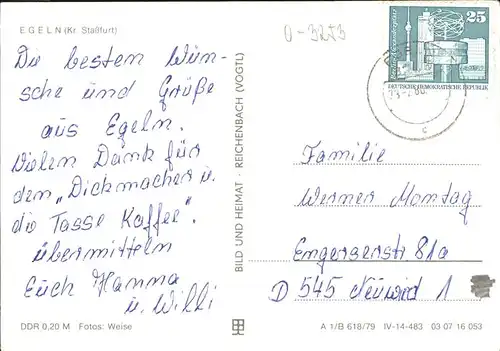 EGELN (Kr Staßfurt)
Die besten Wün-
sche und Grüße
aus Egeln.
Vielen Dank für
den "Dickmacher u.
die Tasse Kaffee".
übermitteln
Euch Hanna
u. Willi
DDR 0,20 M Fotos: Weise
BILD UND HEIMAT · REICHENBACH (VOGTL)
0-3253
25
DEUTSCHE DEMOKRATISCHE REPUBLIK
Familie
Werner Montag
Engerserstr 81a
D 545 Neuwied 1
A 1/B 618/79 IV-14-483 03 07 16 053